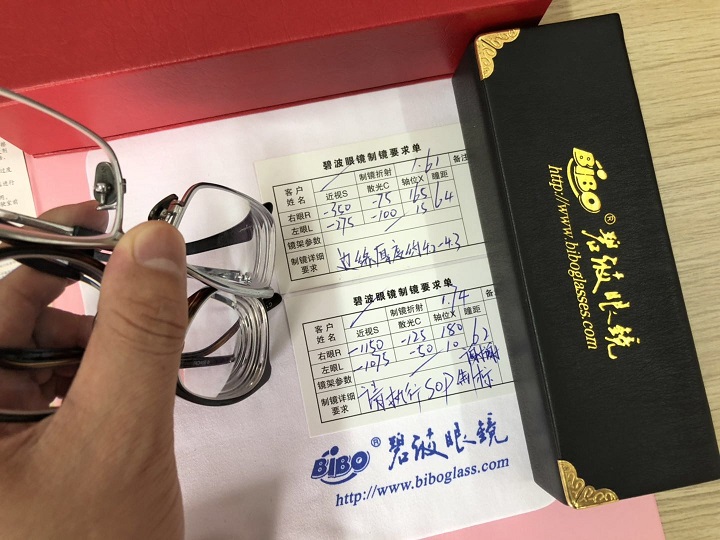 碧波眼镜制镜要求单
客户姓名 制镜折射 1.61 备注
近视S 散光C 轴位X 瞳距
右眼R -350 -75 165 64
左眼L -275 -100 15
镜架参数
制镜详细要求 边缘厚度约4.2-4.3
碧波眼镜制镜要求单
客户姓名 制镜折射 1.74 备
近视S 散光C 轴位X 瞳距
右眼R -1150 -125 180 62
左眼L -1075 -50 10
镜架参数 谢谢
制镜详细要求 请执行SOP制标
BiBO ® 碧波眼镜
http://www.biboglass.com
BiBO ® 碧波眼镜
http://www.biboglasses.com